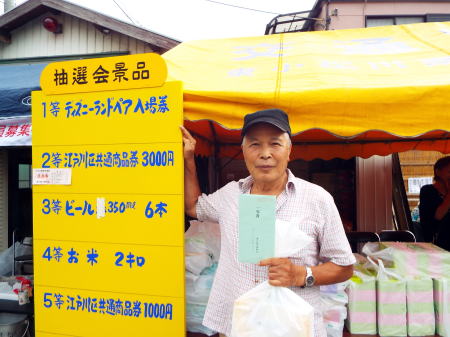 抽選会景品
1等 ディズニーランドペア入場券
2等 江戸川区共通商品券 3000円
3等 ビール 350ml 6本
4等 お米 2キロ
5等 江戸川区共通商品券 1000円
募集